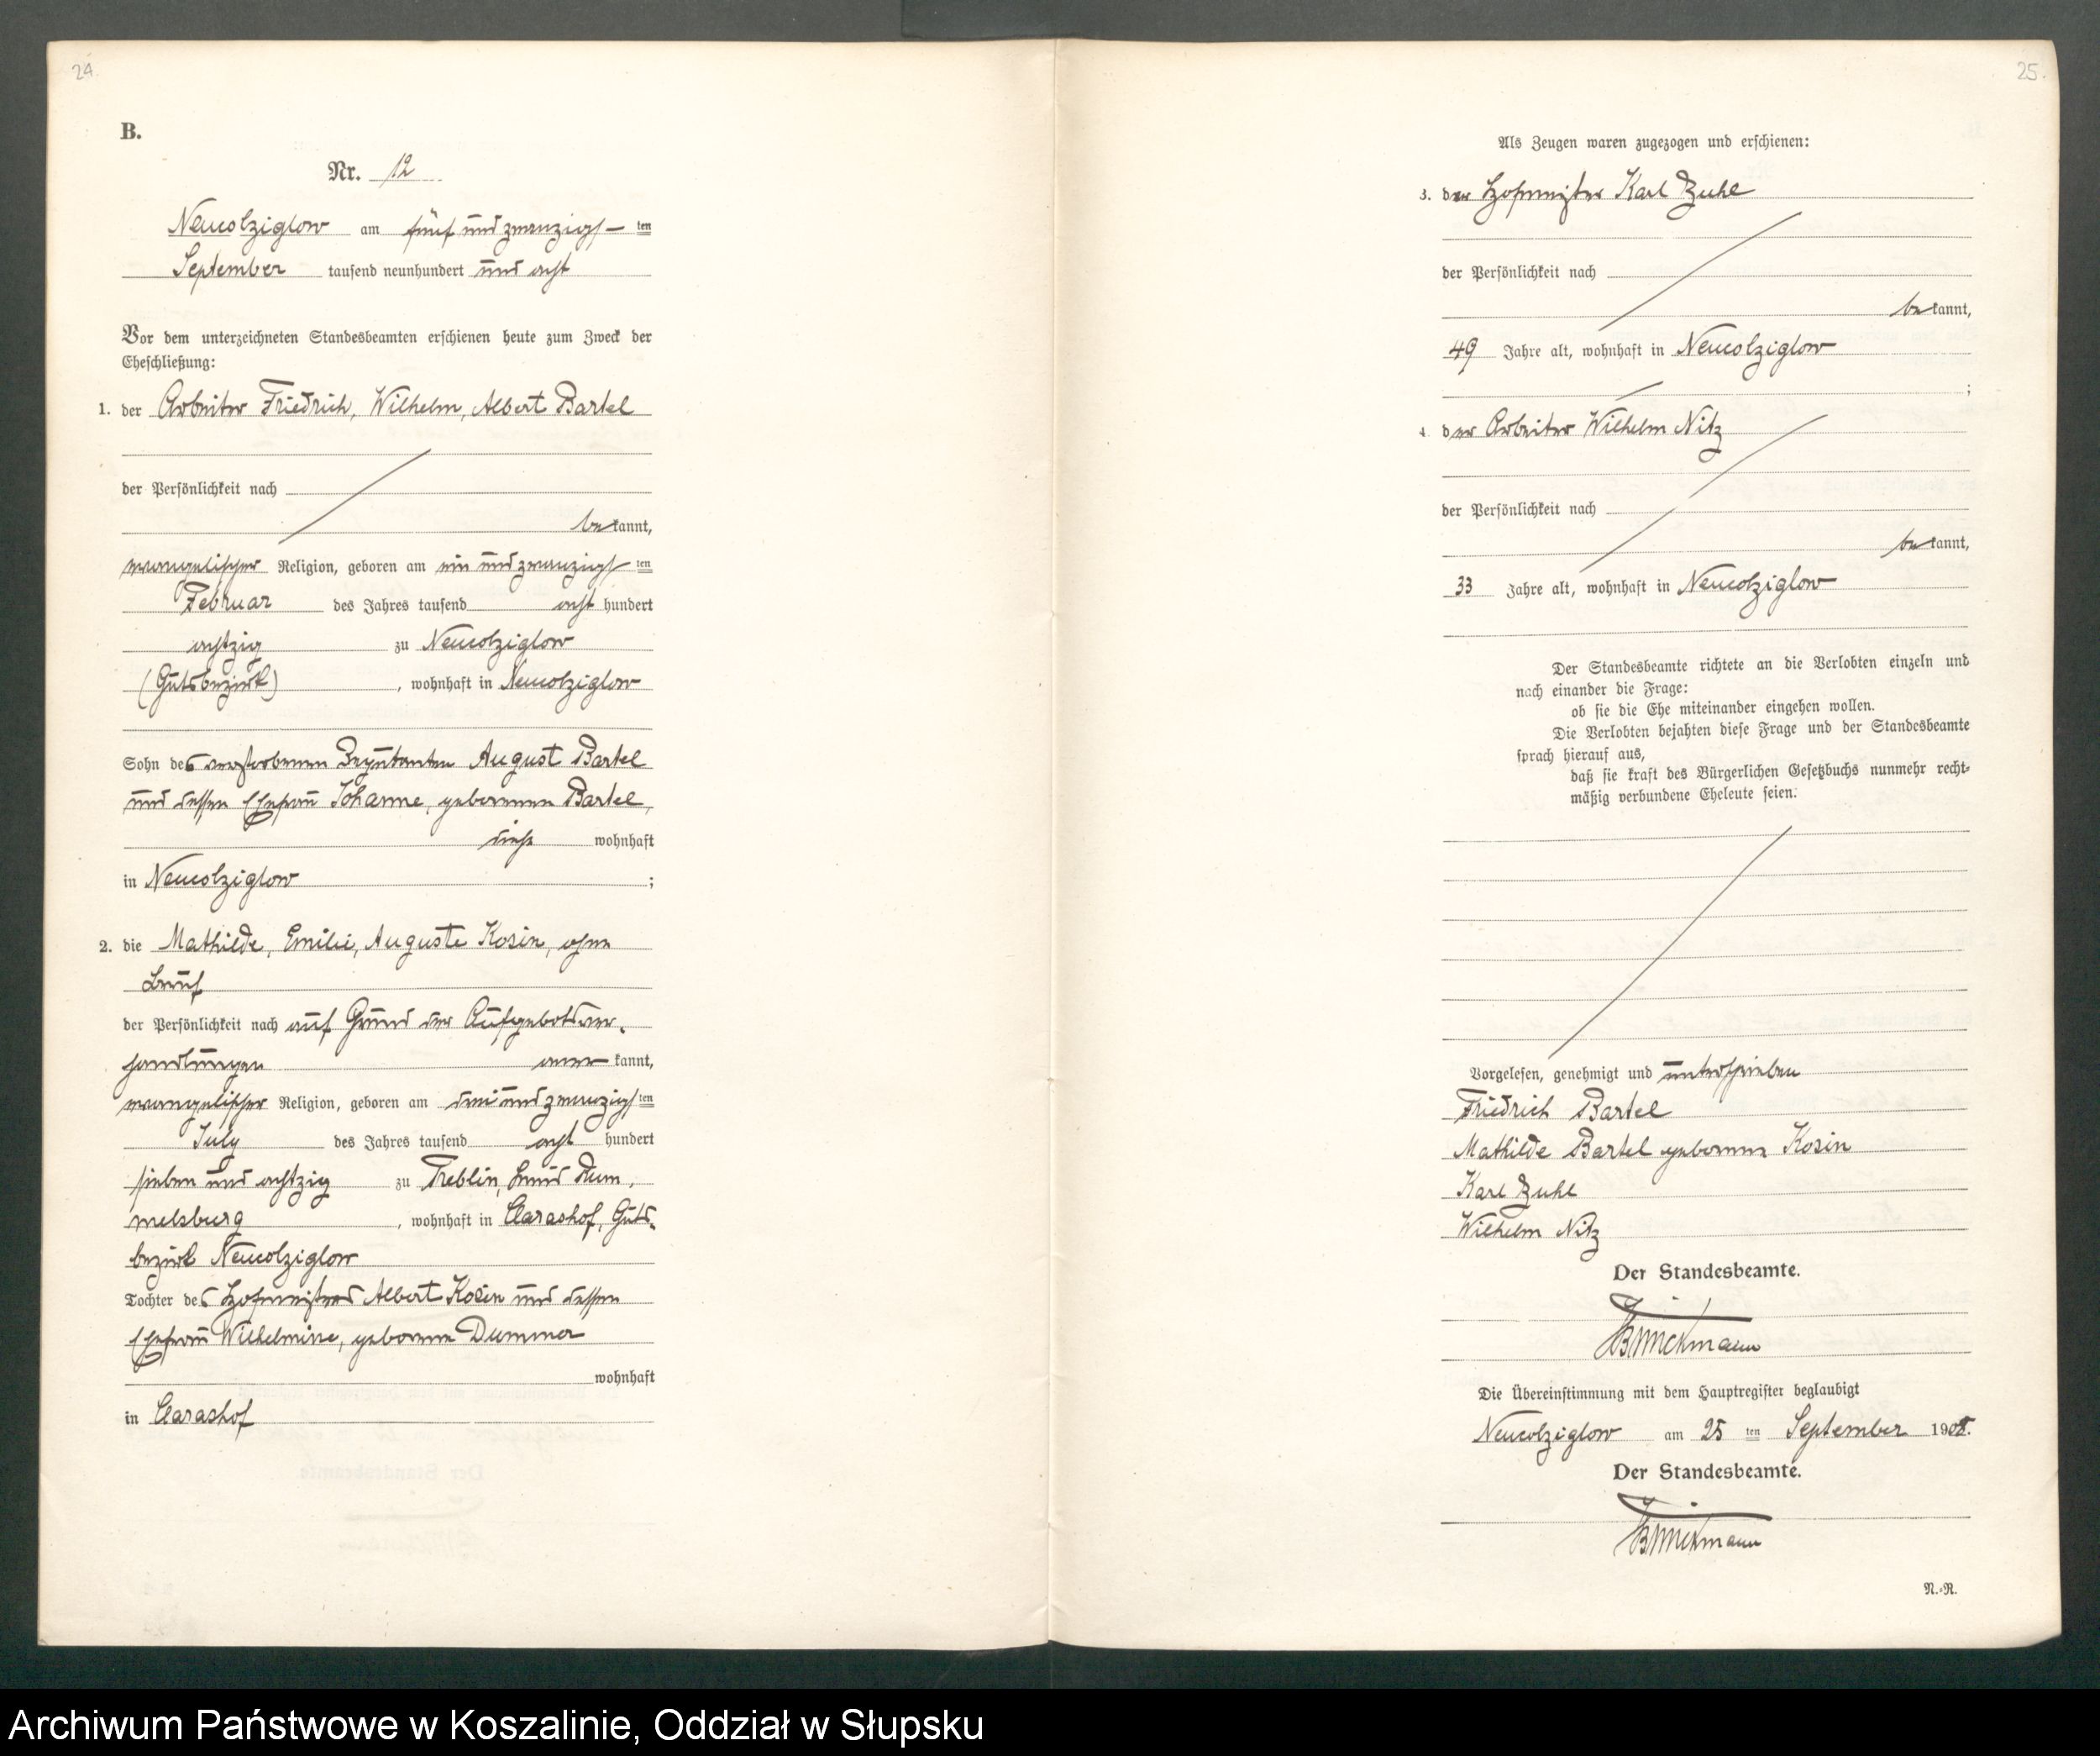 24.
B.
Nr. 12
Neucolziglow am fünf und zwanzigs-ten
September tausend neunhundert und acht
Vor dem unterzeichneten Standesbeamten erschienen heute zum Zweck der
Eheschließung:
1. der Arbeiter Friedrich, Wilhelm, Albert Bartel
der Persönlichkeit nach
be kannt,
evangelischer Religion, geboren am ein und zwanzigs ten
Februar des Jahres tausend acht hundert
achtzig zu Neucolziglow
(Gutsbezirk), wohnhaft in Neucolziglow
Sohn des verstorbenen August Bartel
und dessen Ehefrau Johanne, geborenen Bartel,
diese wohnhaft
in Neucolziglow ;
2. die Mathilde, Emilie, Auguste Kosin, ohne
Beruf
der Persönlichkeit nach auf Grund der Aufgebotsver-
handlungen aner kannt,
evangelischer Religion, geboren am drei und zwanzigs ten
July des Jahres tausend acht hundert
sieben und achtzig zu Treblin, Kreis Rum-
melsburg, wohnhaft in Clarashof, Guts-
bezirk Neucolziglow
Tochter des Hofmeisters Albert Kosin und dessen
Ehefrau Wilhelmine, geborene Dummer
wohnhaft
in Clarashof
25.
Als Zeugen waren zugezogen und erschienen:
3. der Hofmeister Karl Zuhl
der Persönlichkeit nach
be kannt,
49 Jahre alt, wohnhaft in Neucolziglow
;
4. der Arbeiter Wilhelm Nitz
der Persönlichkeit nach
be kannt,
33 Jahre alt, wohnhaft in Neucolziglow
Der Standesbeamte richtete an die Verlobten einzeln und
nach einander die Frage:
ob sie die Ehe miteinander eingehen wollen.
Die Verlobten bejahten diese Frage und der Standesbeamte
sprach hierauf aus,
daß sie kraft des Bürgerlichen Gesetzbuchs nunmehr recht-
mäßig verbundene Eheleute seien.
Vorgelesen, genehmigt und unterschrieben
Friedrich Bartel
Mathilde Bartel geborene Kosin
Karl Zuhl
Wilhelm Nitz
Der Standesbeamte.
Brinckmann
Die Übereinstimmung mit dem Hauptregister beglaubigt
Neucolziglow am 25 ten September 1908.
Der Standesbeamte.
Brinckmann
N.-R.
Archiwum Państwowe w Koszalinie, Oddział w Słupsku